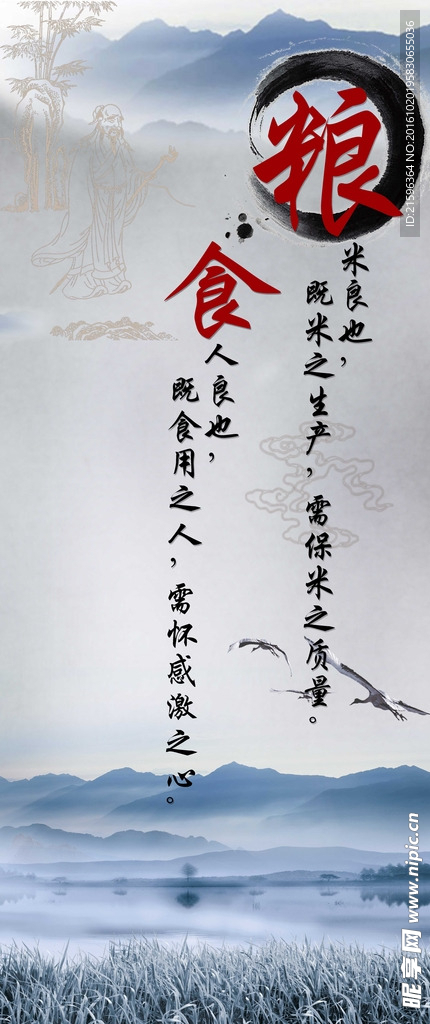 粮
米良也，
既米之生产，需保米之质量。
食
人良也，
既食用之人，需怀感激之心。
ID:21596364 NO:20161020195830655036
昵享网 www.nipic.cn